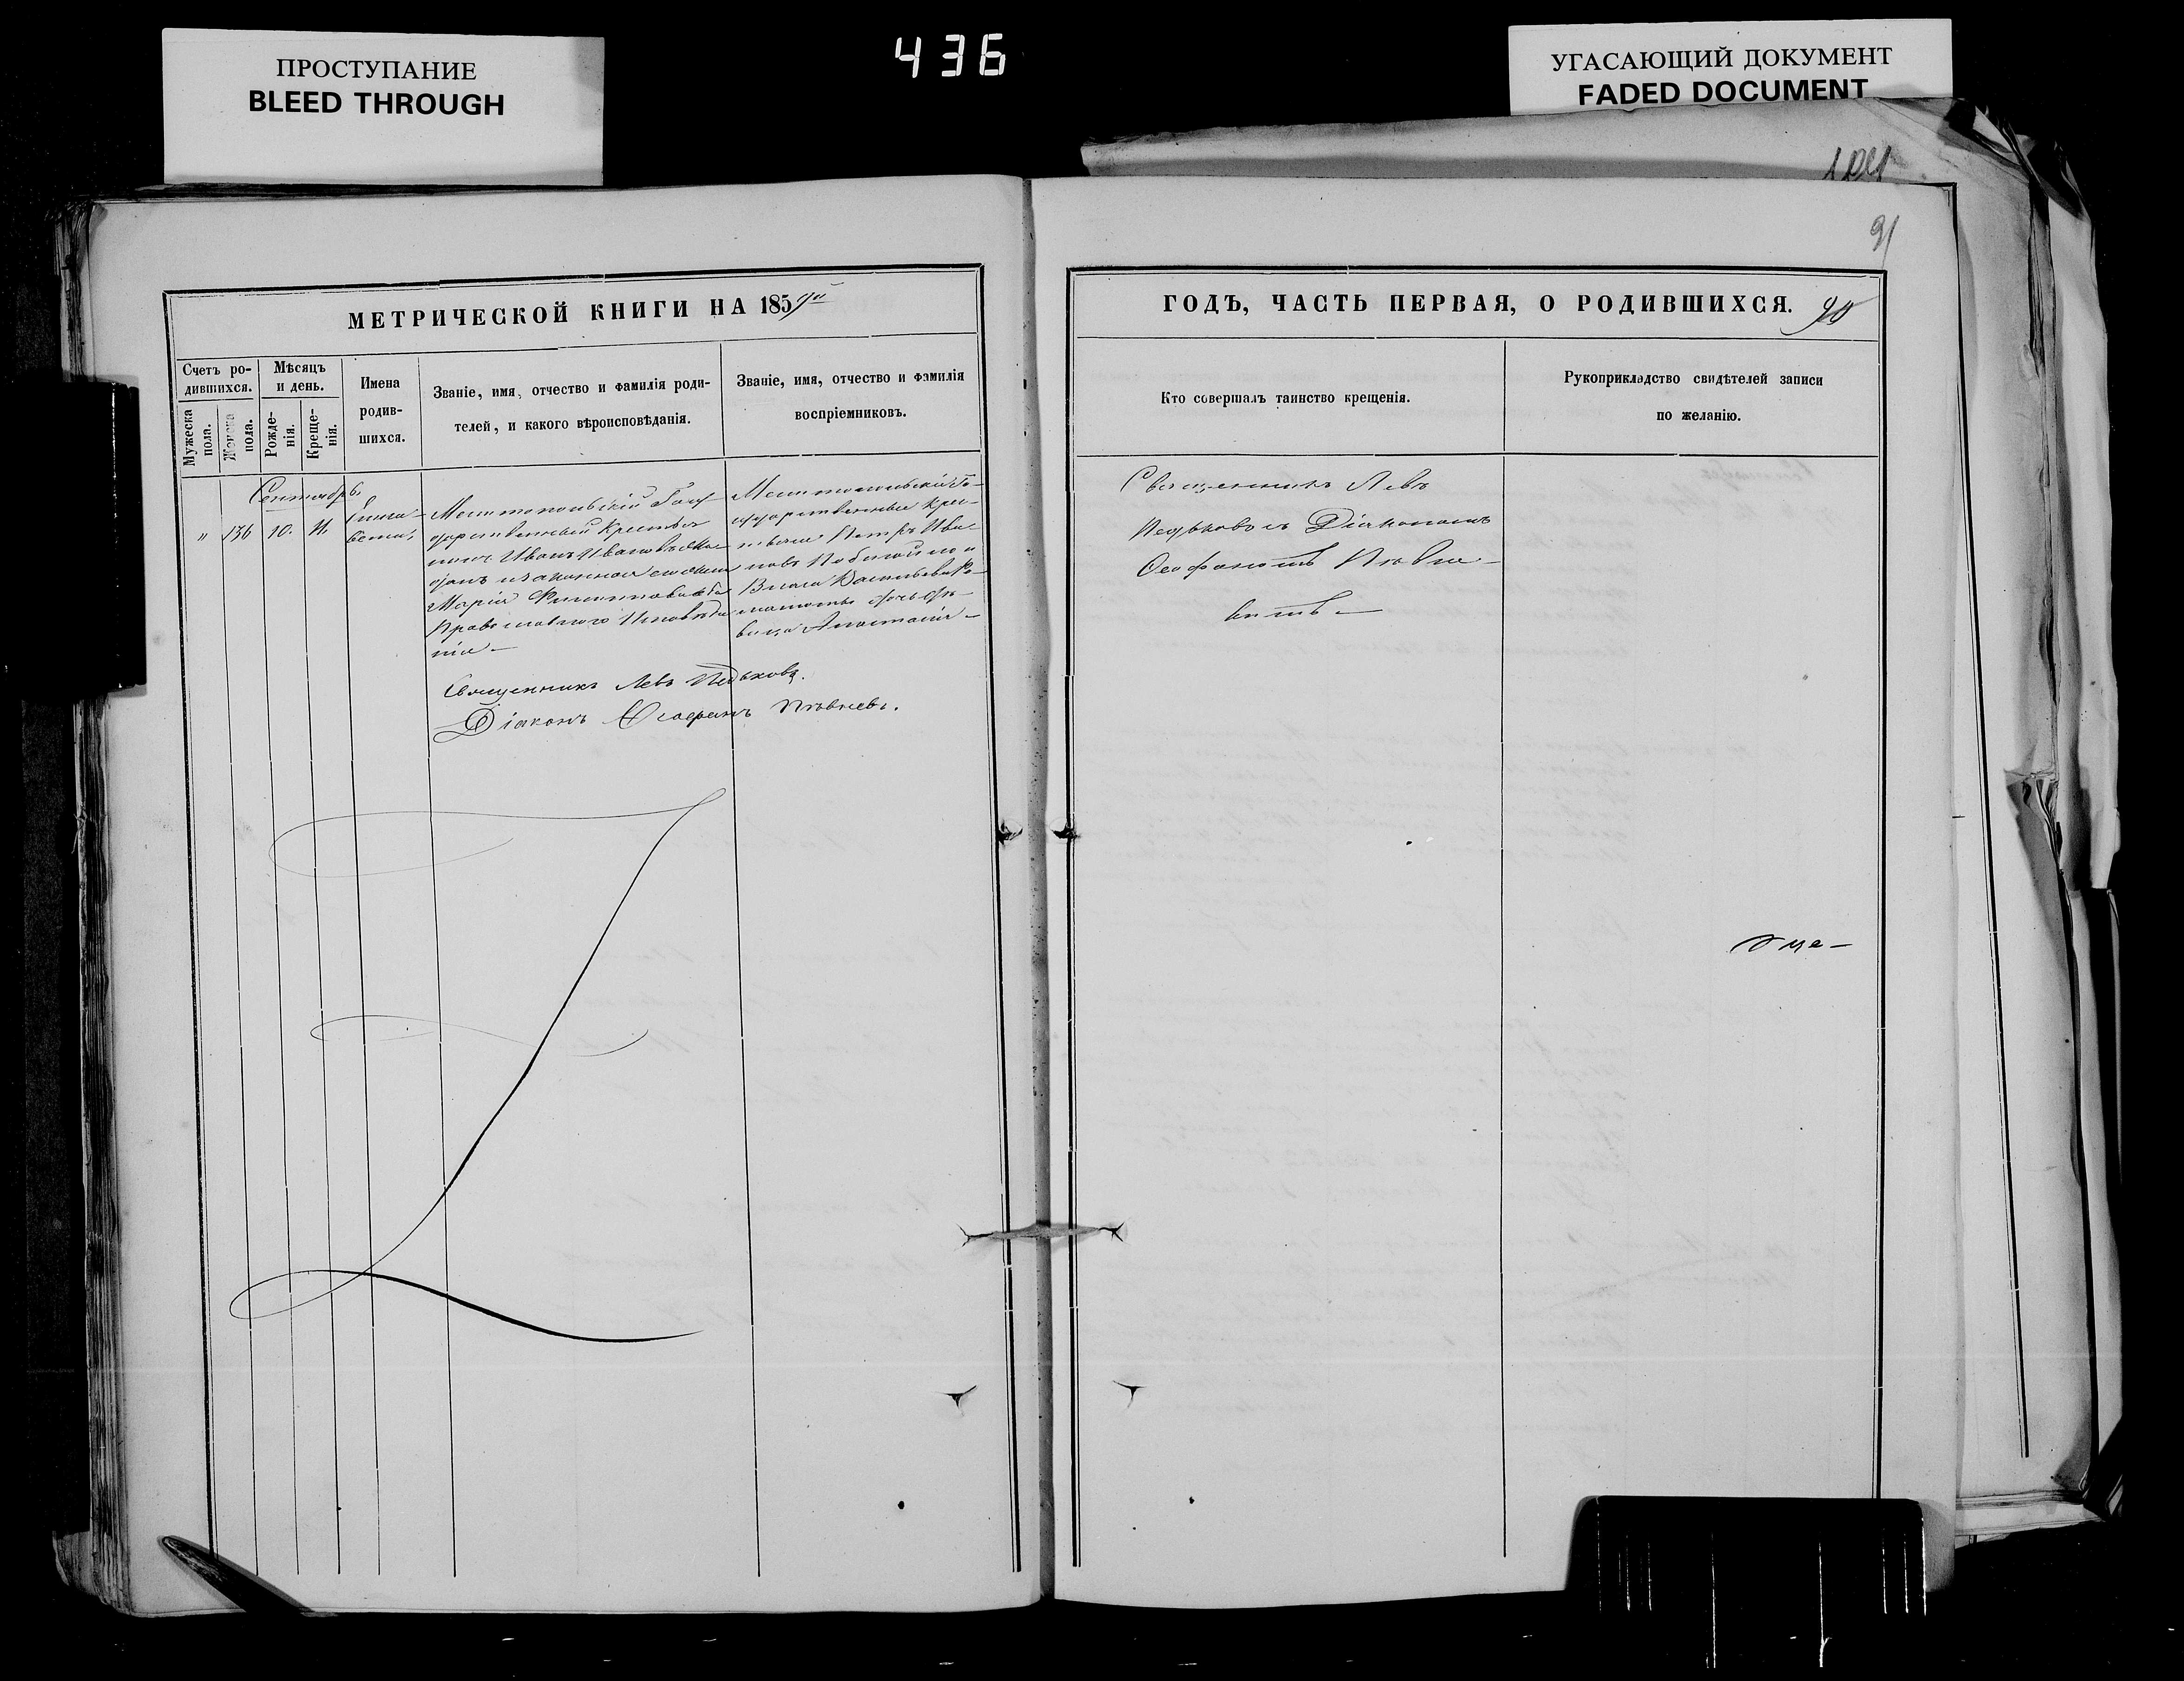 ПРОСТУПАНИЕ
BLEED THROUGH
436
УГАСАЮЩИЙ ДОКУМЕНТ
FADED DOCUMENT
91
МЕТРИЧЕСКОЙ КНИГИ НА 1859й
Счетъ ро-
дившихся.
Мужеска
пола.
Женска
пола.
Мѣсяцъ
и день.
Рожде-
нія.
Креще-
нія.
Имена
родив-
шихся.
Званіе, имя, отчество и фамилія роди-
телей, и какого вѣроисповѣданія.
Званіе, имя, отчество и фамилія
воспріемниковъ.
Сентябрь
" 136 10. 11.
Мелитопольскій Госу
дарственный Крестья
нинъ Иванъ Ивановъ
законная жена
Марія
Православнаго Исповѣда
нія
Мелитопольскій Го-
сударственные Крес-
тьяне Петръ Ива-
новъ и
Василья
дочь дѣ-
вица Анастасія
Священникъ Левъ Педьковъ.
Діаконъ Ѳеофанъ Пѣвневъ.
ГОДЪ, ЧАСТЬ ПЕРВАЯ, О РОДИВШИХСЯ. 90
Кто совершалъ таинство крещенія.
Рукоприкладство свидѣтелей записи
по желанію.
Священникъ Левъ
Педьковъ съ Діакономъ
Ѳеофаномъ Пѣвне
вымъ